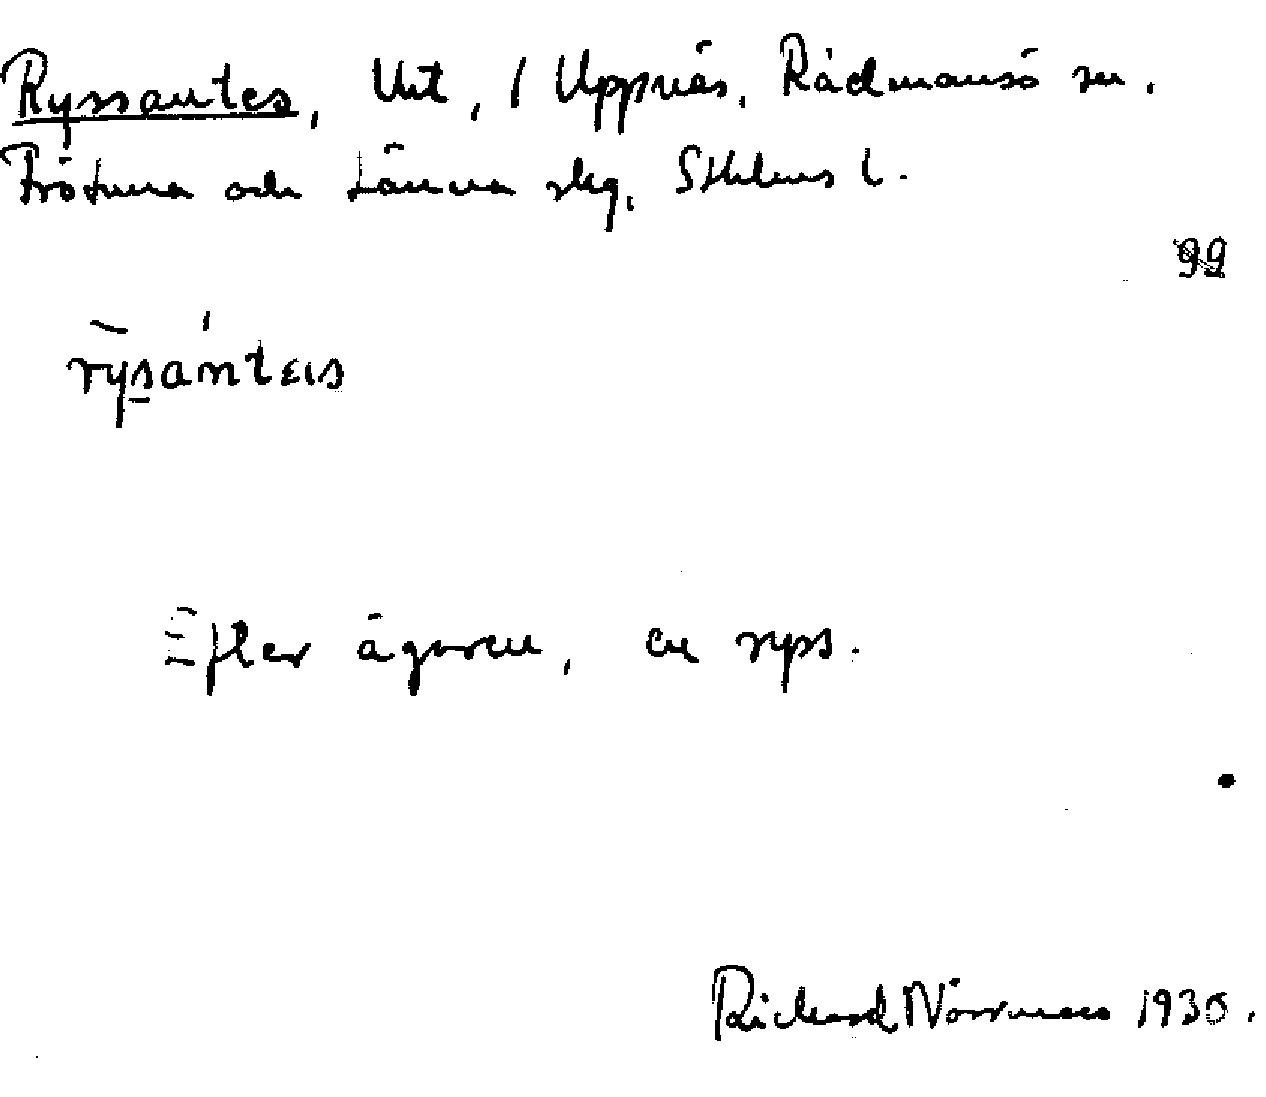 Ryssantes, Urt, / Uppnäs, Rådmansö sn.
Frötuna och Länna skg, Sthlms l.
99
rysánteıs
Efter ägaren, en ryss.
Rickard Norrman 1930.